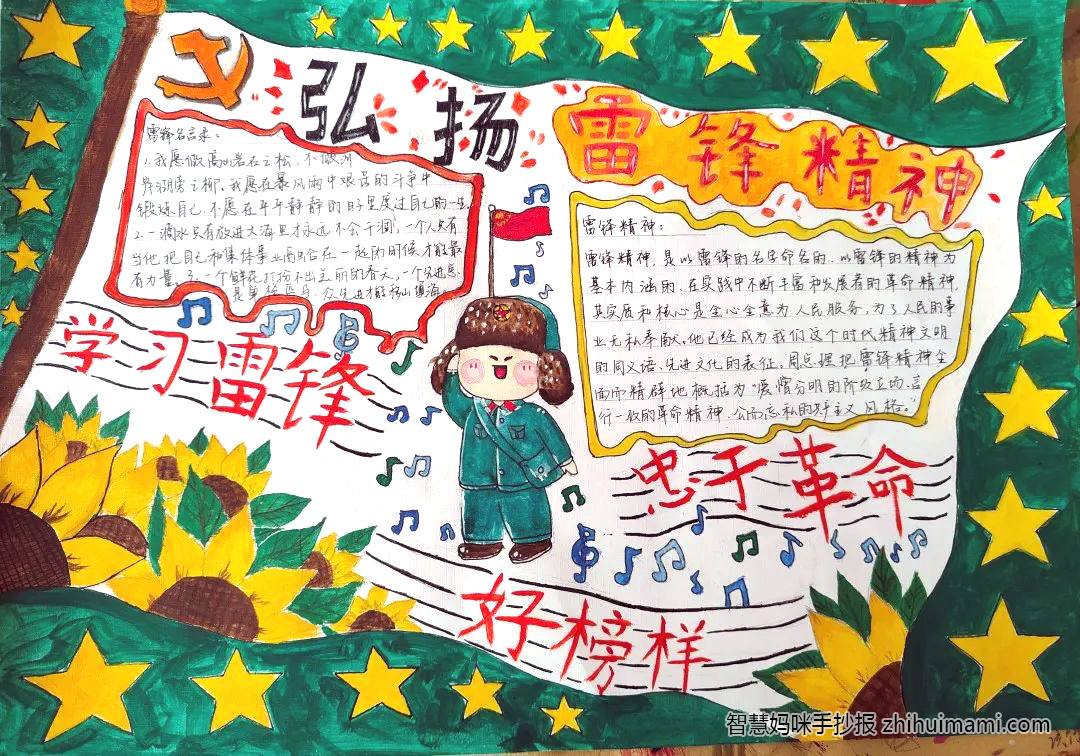 弘扬
雷锋精神
雷锋名言录:
1.我愿做高山岩石之松,不做湖
岸河旁之柳。我愿在暴风雨中艰苦的斗争中
锻炼自己,不愿在平平静静的日子里度过自己的一生。
2.一滴水只有放进大海里才永远不会干涸,一个人只有
当他把自己和集体事业融合在一起的时候才能最
有力量。3.一个鲜花打扮不出美丽的春天,一个先进
是单枪匹马,众先进才能移山填海。
雷锋精神:
雷锋精神,是以雷锋的名字命名的,以雷锋的精神为
基本内涵的,在实践中不断丰富和发展着的革命精神,
其实质和核心是全心全意为人民服务,为了人民的事
业无私奉献。他已经成为我们这个时代精神文明
的同义语、先进文化的表征。周总理把雷锋精神全
面而精辟地概括为“爱憎分明的阶级立场、言
行一致的革命精神、公而忘私的 主义风格。”
学习雷锋
忠于革命
好榜样
智慧妈咪手抄报 zhihuimami.com